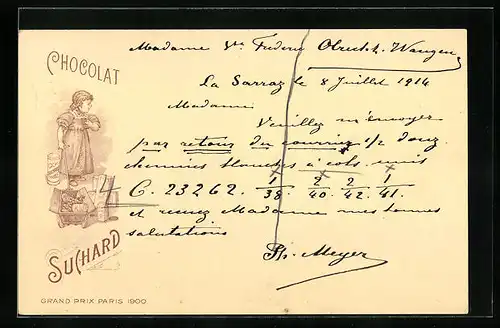 CHOCOLAT
SUCHARD
GRAND PRIX PARIS 1900
Madame Vve Frédéric Obrecht. Wangen
La Sarraz le 8 Juillet 1914
Madame
Veuillez m'envoyer
par retour du courrier 1/2 douz.
chemises blanches à cols, unis
4 C. 23262. 1/38. 2/40. 2/42. 1/41.
et recevez Madame mes bonnes
salutations
Ph. Meyer